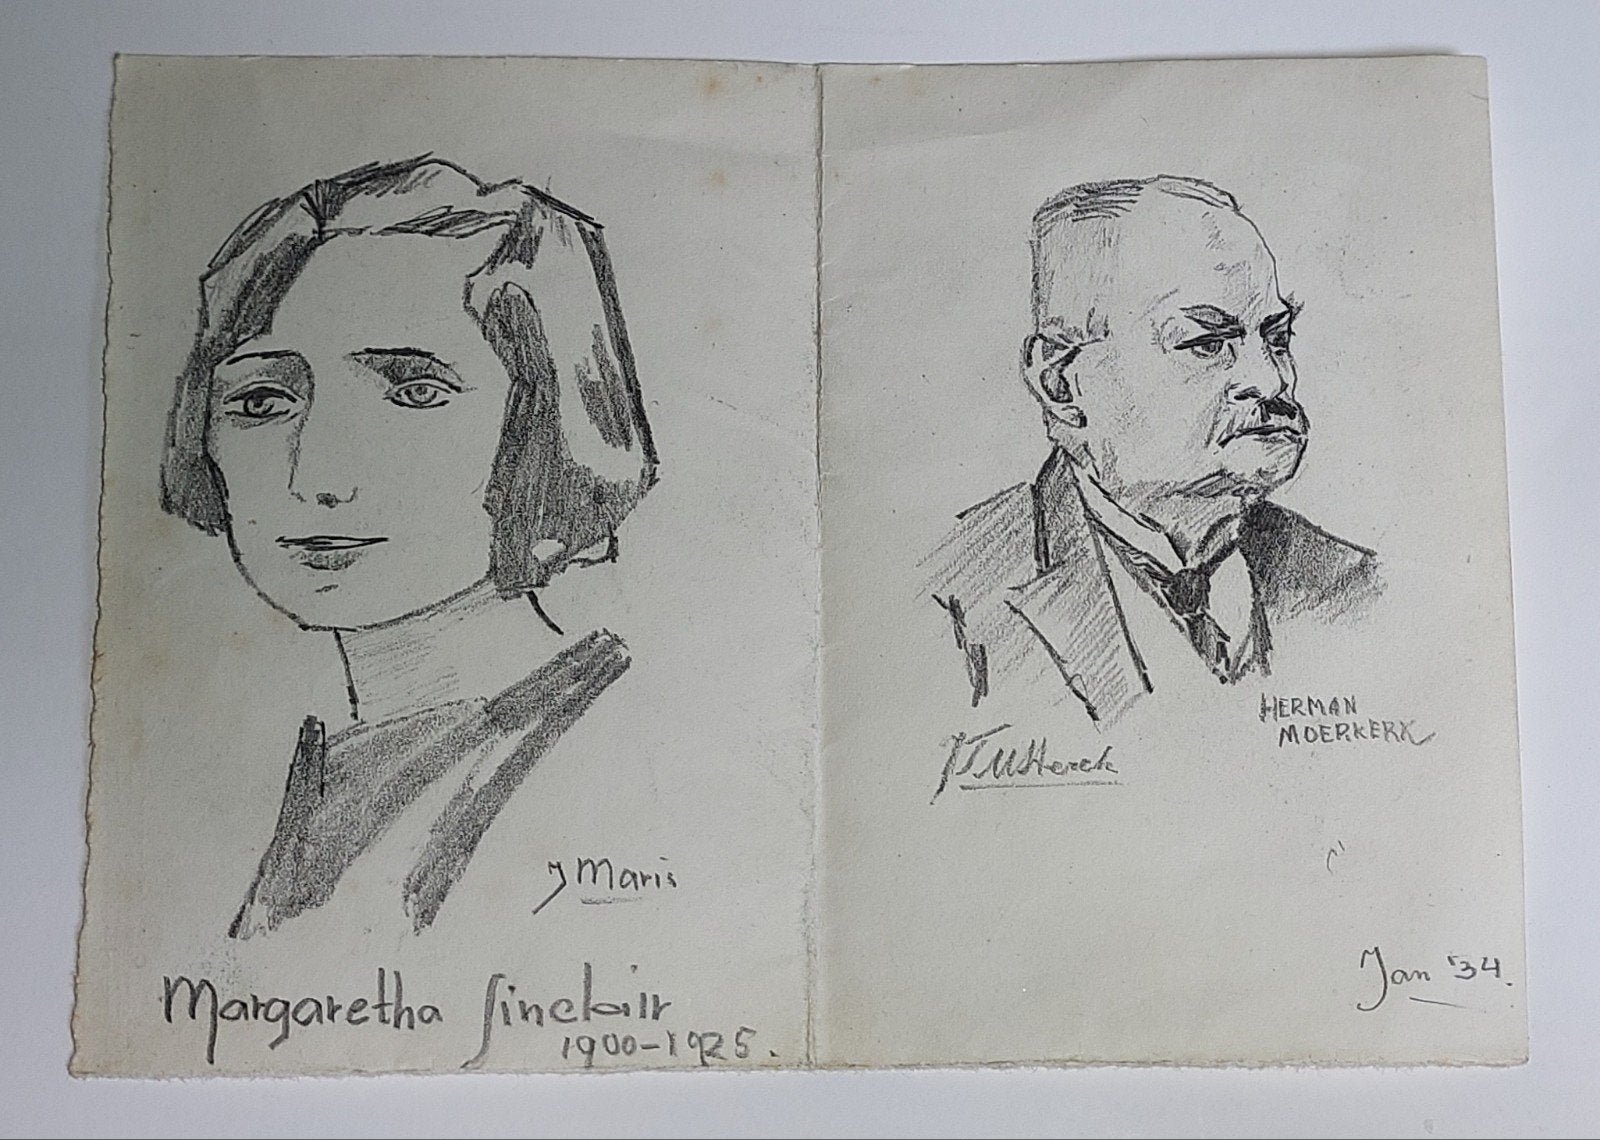 J Maris
Margaretha Sinclair
1900-1925.
HERMAN
MOERKERK
Jan '34.